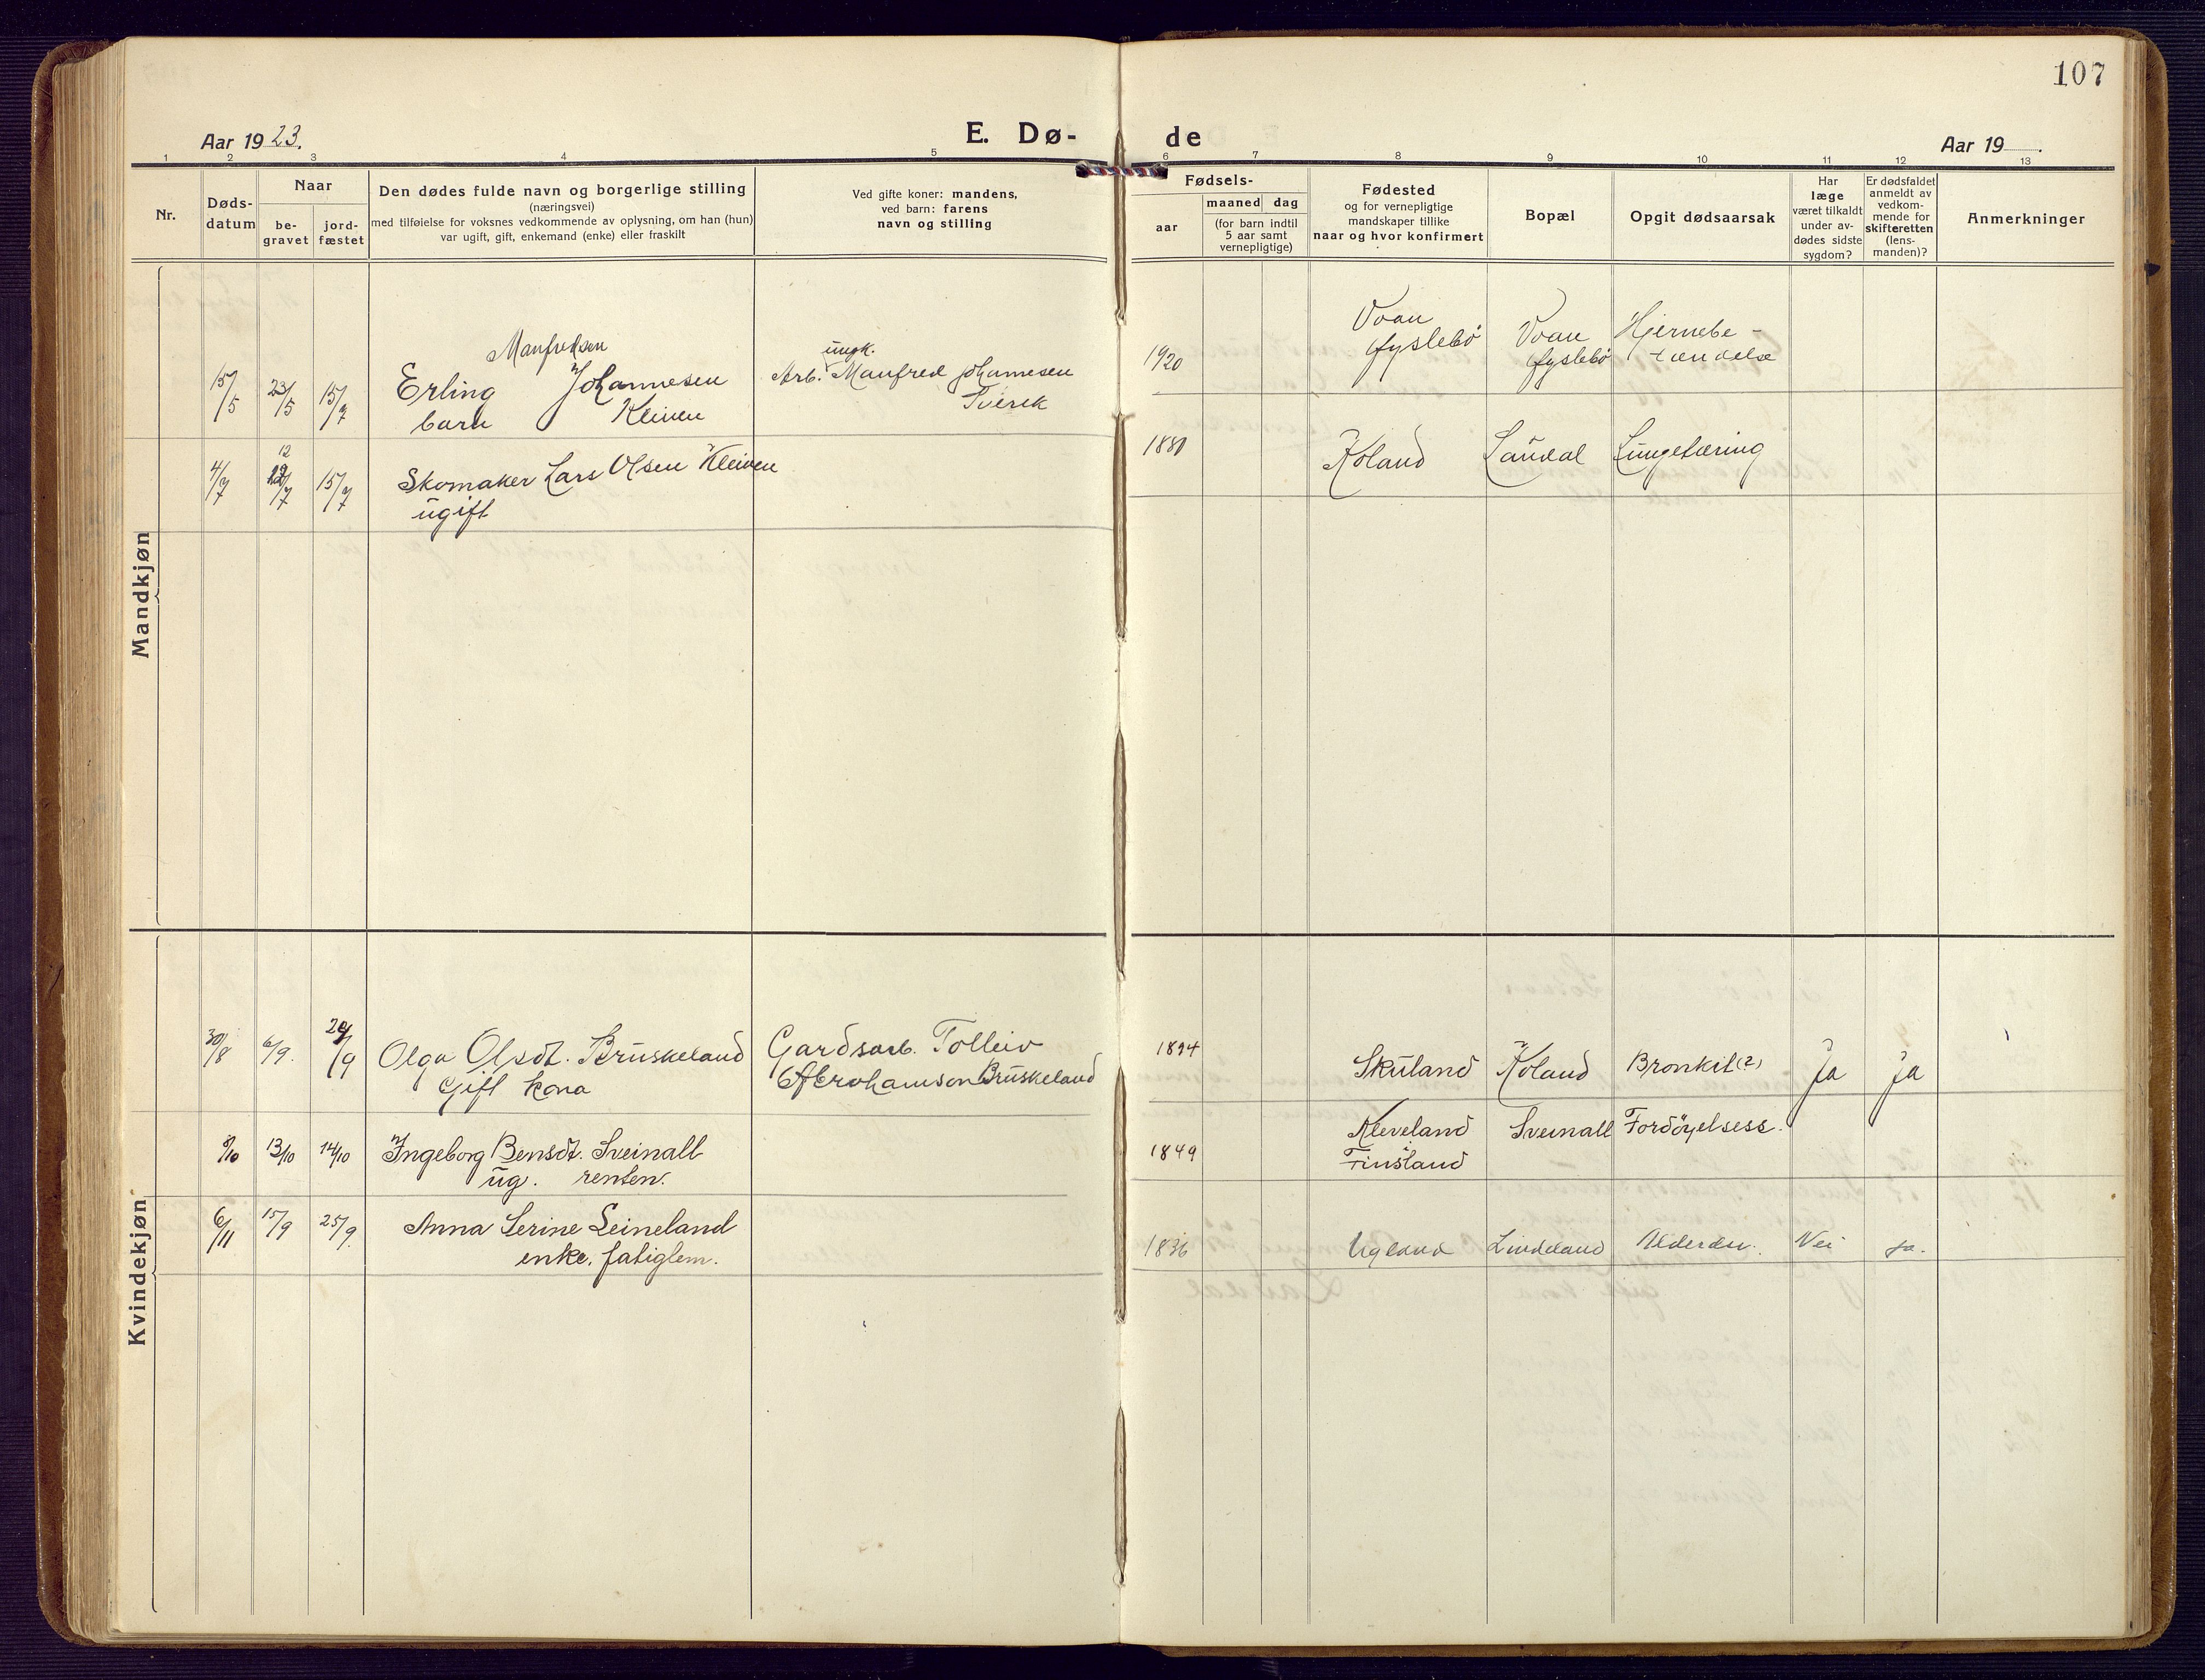 107
Aar 1923.
E. Dø-
de
Aar 19 .
1 2 3 4 5 6 7 8 9 10 11 12 13
Nr.
Døds-
datum
Naar
be-
gravet
jord-
fæstet
Den dødes fulde navn og borgerlige stilling
(næringsvei)
med tilføielse for voksnes vedkommende av oplysning, om han (hun)
var ugift, gift, enkemand (enke) eller fraskilt
Ved gifte koner: mandens,
ved barn: farens
navn og stilling
Fødsels-
aar
maaned dag
(for barn indtil
5 aar samt
vernepligtige)
Fødested
og for vernepligtige
mandskaper tillike
naar og hvor konfirmert
Bopæl
Opgit dødsaarsak
Har
læge
været tilkaldt
under av-
dødes sidste
sygdom?
Er dødsfaldet
anmeldt av
vedkom-
mende for
skifteretten
(lens-
manden)?
Anmerkninger
Mandkjøn
15/5 23/5 15/7
Manfredsen
Erling Johannesen
barn Kleiven
ungk.
Arb. Manfred Johannesen
1920
Voan
Øyslebö
Voan
Øyslebö
Hjernebe-
tændelse
4/7
12
12/7
15/7
Skomaker Lars Olsen Kleiven
ugift
1880
Koland
Laudal
Lungetæring
Kvindekjøn
30/8 6/9. /9
Olga Olsdt. Bruskeland
Gift kona
Gardsarb. Tolleiv
Abrahamson Bruskeland
1894
Skuland
Koland
Bronkit (?)
Ja
Ja
/10 13/10 14/10
Ingeborg Bensdt. Sveinall
ug. renten.
1849
Kleveland
Finsland
Sveinall
Fordöyelsess.
6/11 15/9 25/9.
Anna Serine Leineland
enke. fatiglem.
1836
Ugland
Lindeland
Alderdn.
Nei
Ja.